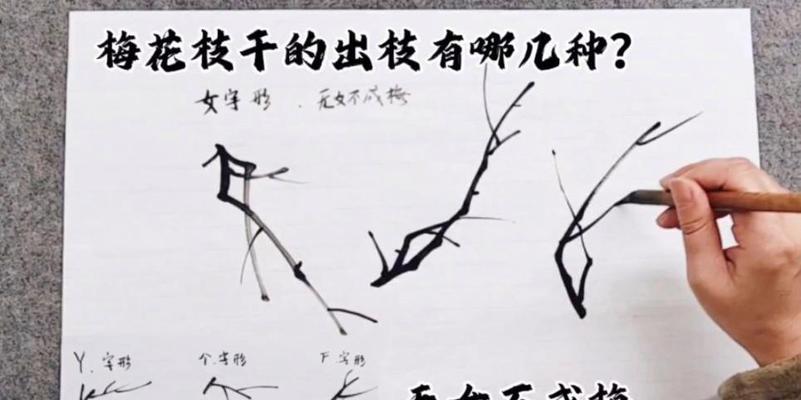 梅花枝干的出枝有哪几种？
女字形 . 无女不成梅
Y.字形 个.字形 F.字形
无女不成梅